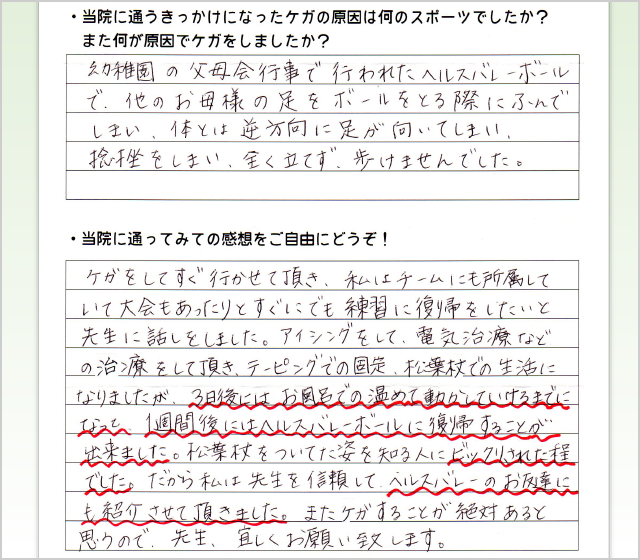 ・当院に通うきっかけになったケガの原因は何のスポーツでしたか?
また何が原因でケガをしましたか?
幼稚園の父母会行事で行われたヘルスバレーボール
で、他のお母様の足をボールをとる際にふんで
しまい、体とは逆方向に足が向いてしまい、
捻挫をしまい、全く立てず、歩けませんでした。
・当院に通ってみての感想をご自由にどうぞ!
ケガをしてすぐ行かせて頂き、私はチームにも所属して
いて大会もあったりとすぐにでも練習に復帰をしたいと
先生に話しをしました。アイシングをして、電気治療など
の治療をして頂き、テーピングでの固定、松葉杖での生活に
なりましたが、3日後にはお風呂での温めて動かしていけるまでに
なって、1週間後にはヘルスバレーボールに復帰することが
出来ました。松葉杖をついてた姿を知る人にビックリされた程
でした。だから私は先生を信頼して、ヘルスバレーのお友達に
も紹介させて頂きました。またケガすることが絶対あると
思うので、先生、宜しくお願い致します。